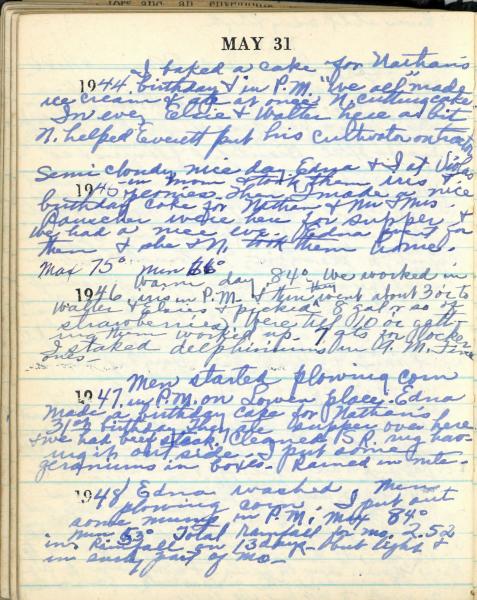 MAY 31
I baked a cake for Nathan's
1944 birthday & in P.M. "we all" made
ice cream & at once N. cutting cake
In eve, Elsie & Walter here a bit
N. helped Everett put his cultivator on tractor
Semi cloudy nice day. Edna & I at
1945 in morn took them iris &
peonies. She made a nice
birthday cake for Nathan & Mr & Mrs.
Rauscher were here for supper &
we had a nice eve. Edna went for
them & she & N. took them home.
Max 75° min 66°
1946 Warm day, 84° We worked in
iris in P.M. & then went about 3 o'c to
Walter & Elsies & picked 8 gal or so of
strawberries. Were till 10 o'c getting
them worked up. 7 qts for locker
I staked delphiniums in A.M. Fine
ones.
Men started plowing corn
1947 in P.M. on Lower place. Edna
made a birthday cake for Nathan's
31st birthday. They ate supper over here
& we had beef steak. Cleaned S.R. rug hav-
ing it out side. I put some
geraniums in boxes. Rained in nite.
1948 Edna washed Men
plowing corn. I put out
some mums P.M. Max 84°
Min 53° Total rainfall for mo. 2.52
in. Rainfall on 13 days - but light &
in early part of mo.